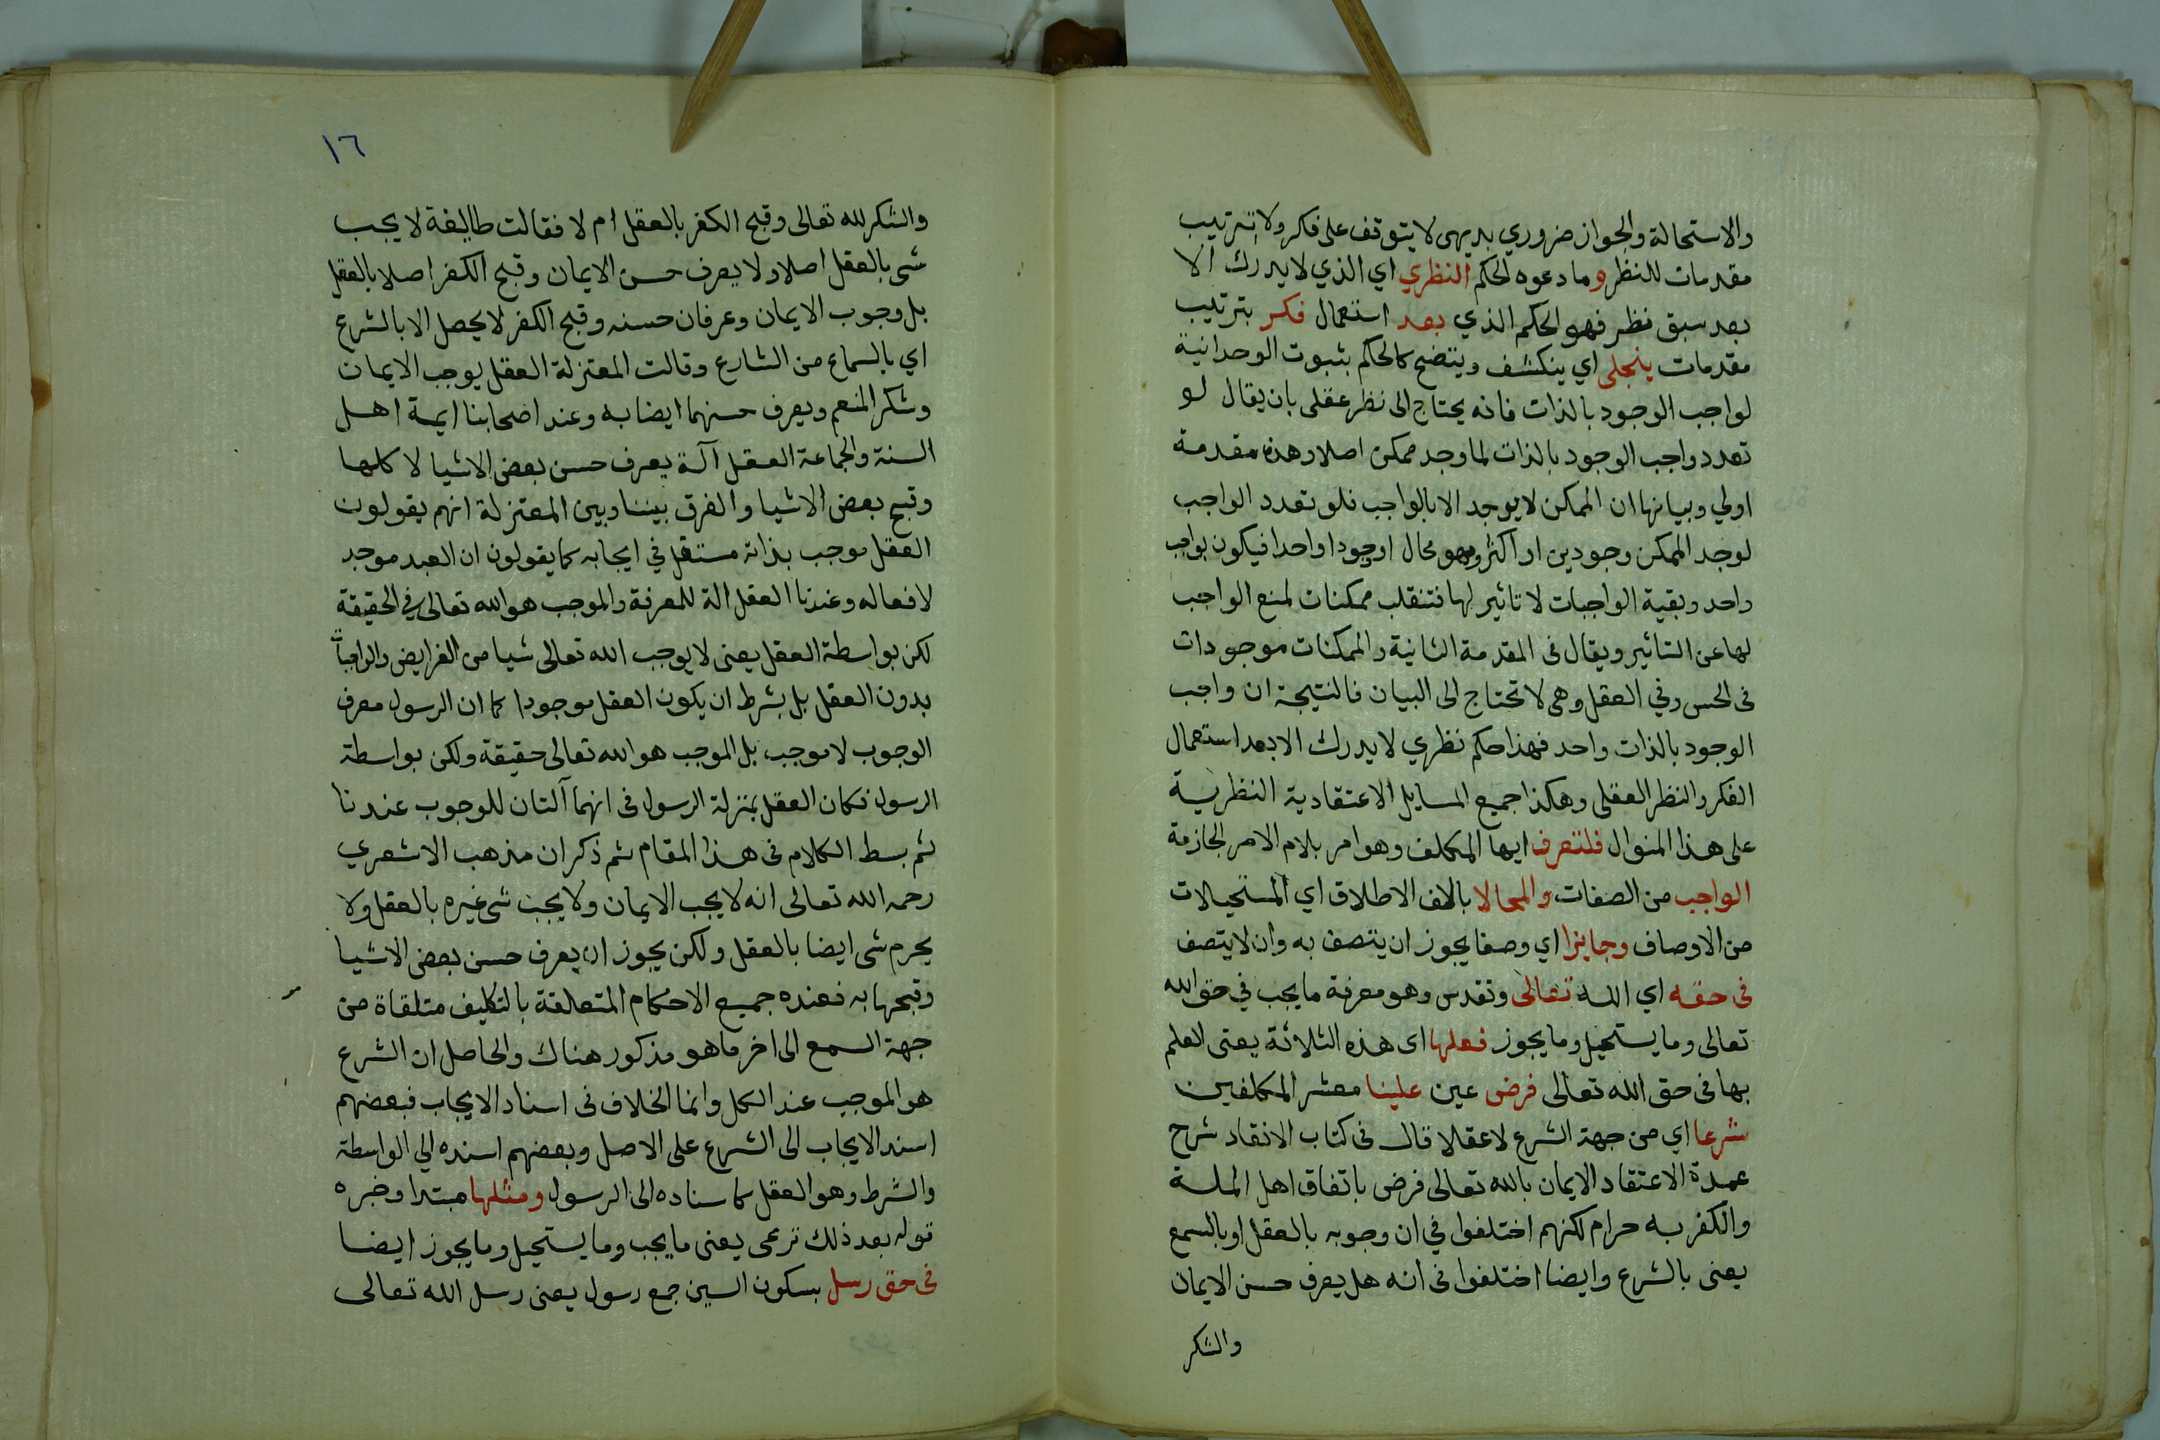 والاستحالة والجواز ضروري بديهي لا يتوقف على فكر ولا ترتيب
مقدمات للنظر وما دعوه لحكم النظري اي الذي لا يدرك الا
بعد سبق نظر فهو الحكم الذي بعد استعمال فكر بترتيب
مقدمات ينجلي اي ينكشف ويتضح كالحكم بثبوت الوحدانية
لواجب الوجود بالذات فانه يحتاج الى نظر عقلي بان يقال لو
تعدد واجب الوجود بالذات لما وجد ممكن اصلا وهذه مقدمة
اولي وبيانها ان الممكن لا يوجد الا بالواجب فلو تعدد الواجب
لوجد الممكن وجودين او اكثر وهو محال او وجودا واحدا فيكون بواجب
واحد وبقية الواجبات لا تاثير لها فتنقلب ممكنات لمنع الواجب
لها عن التاثير ويقال في المقدمة الثانية والممكنات موجودات
في الحس وفي العقل وهي لا تحتاج الى البيان فالنتيجة ان واجب
الوجود بالذات واحد فهذا حكم نظري لا يدرك الا بعد استعمال
الفكر والنظر العقلي وهكذا جميع المسايل الاعتقادية النظرية
على هذا المنوال فلتعرف ايها المكلف وهو امر بلام الامر الجازمة
الواجب من الصفات والمحالا بالف الاطلاق اي المستحيلات
من الاوصاف وجايزا اي وصفا يجوز ان يتصف به وان لا يتصف
في حقه اي الله تعالى وتقدس وهو معرفة ما يجب في حق الله
تعالى وما يستحيل وما يجوز فعلها اى هذه الثلاثة يعني العلم
بها في حق الله تعالى فرض عين علينا معشر المكلفين
شرعا اي من جهة الشرع لا عقلا قال في كتاب الانقاد شرح
عمدة الاعتقاد الايمان بالله تعالى فرض باتفاق اهل الملة
والكفر به حرام لكنهم اختلفوا في ان وجوبه بالعقل او بالسمع
يعني بالشرع وايضا اختلفوا في انه هل يعرف حسن الايمان
والشكر
١٦
والشكر لله تعالى وقبح الكفر بالعقل ام لا فقالت طايفة لا يجب
شي بالعقل اصلا ولا يعرف حسن الايمان وقبح الكفر اصلا بالعقل
بل وجوب الايمان وعرفان حسنه وقبح الكفر لا يحصل الا بالشرع
اي بالسماع من الشارع وقالت المعتزلة العقل يوجب الايمان
وشكر المنعم ويعرف حسنهما ايضا به وعند اصحابنا ايمة اهل
السنة والجماعة العقل آلة يعرف حسن بعض الاشيا لا كلها
وقبح بعض الاشيا والفرق بيننا وبين المعتزلة انهم يقولون
العقل موجب بذاته مستقل في ايجابه كما يقولون ان العبد موجد
لافعاله وعندنا العقل الة للمعرفة والموجب هو الله تعالى في الحقيقة
لكن بواسطة العقل يعني لا يوجب الله تعالى شيا من الفرايض والواجبات
بدون العقل بل بشرط ان يكون العقل موجودا كما ان الرسول معرف
الوجوب لا موجب بل الموجب هو الله تعالى حقيقة ولكن بواسطة
الرسول فكان العقل بمنزلة الرسول في انهما آلتان للوجوب عندنا
ثم بسط الكلام في هذا المقام ثم ذكر ان مذهب الاشعري
رحمه الله تعالى انه لا يجب الايمان ولا يجب شي غيره بالعقل ولا
يحرم شي ايضا بالعقل ولكن يجوز ان يعرف حسن بعض الاشيا
وقبحها به فعنده جميع الاحكام المتعلقة بالتكليف متلقاة من
جهة السمع الى اخر ما هو مذكور هناك والحاصل ان الشرع
هو الموجب عند الكل وانما الخلاف في اسناد الايجاب فبعضهم
اسند الايجاب الى الشرع على الاصل وبعضهم اسنده الي الواسطة
والشرط وهو العقل كاسناده الى الرسول ومثلها مبتدا وخبره
قوله بعد ذلك ترعى يعني ما يجب وما يستحيل وما يجوز ايضا
في حق رسل بسكون السين جمع رسول يعني رسل الله تعالى